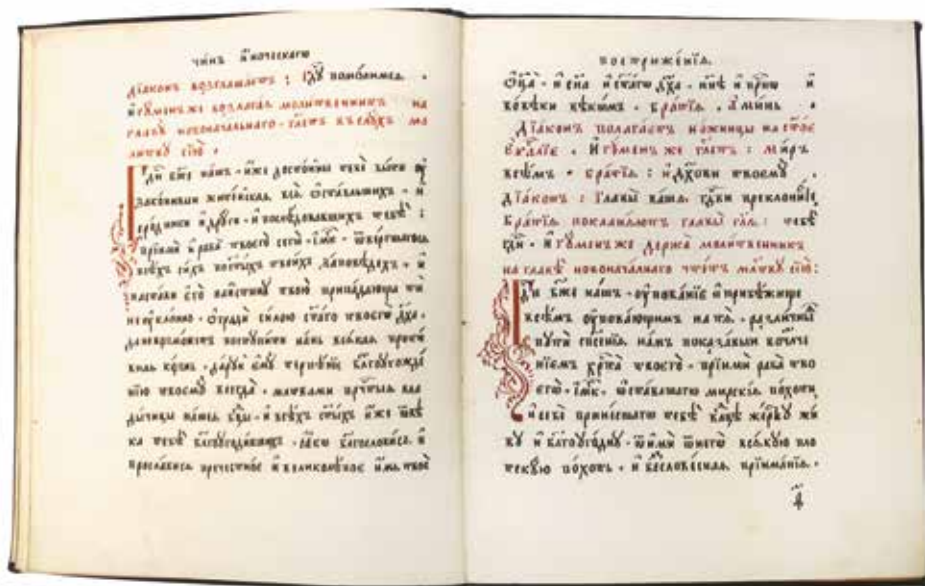 чи́нъ и҆́ноческагѡ
дїа́конъ возглаша́етъ : гдⷭ҇ꙋ помо́лимсѧ .
и҆гꙋ́менъ же возлага́ѧ моли́твенникъ на
главꙋ̀ новонача́льнаго · гл҃етъ въслꙋ́хъ мо
ли́твꙋ сїю̀ .
Гдⷭ҇и бж҃е на́шъ · и҆́же досто́йны тебѐ бы́ти оу҆
зако́нивыи жите́йскаѧ всѧ̑ ѡ҆ста́вльшихъ · и҆
сро́дники и҆ дрꙋ́ги · и҆ послѣ́довавшихъ тебѣ̀ :
прїимѝ и҆ раба̀ твоего̀ сего̀ · и҆́мк · ѿве́ргшагосѧ
всѣ́хъ си́хъ по ст҃ы́хъ твои́хъ за́повѣдехъ · и҆
наста́ви є҆го̀ на и҆́стинꙋ твою̀ припа́дающа тѝ
неѹкло́нно · ѡ҆гради́ си́лою ст҃а́гѡ твоегѡ̀ дх҃а ·
да не возмо́жетъ востꙋпи́ти на́нь всѧ́каѧ проти́
внаѧ ко́знь · да́рꙋй є҆мꙋ̀ терпѣ́нїе бл҃гоꙋгожде́
нїю твоемꙋ̀ всегда̀ · мл҃твами прчⷭ҇тыѧ вла
ды́чицы на́шеѧ бцⷣы · и҆ всѣ́хъ ст҃ы́хъ и҆́же ѿ вѣ́
ка тебѣ̀ бл҃гоꙋгоди́вшихъ · ꙗ҆́кѡ бл҃гослови́сѧ и҆
просла́висѧ пречестно́е и҆ великолѣ́пое и҆́мѧ твоѐ
постриже́нїѧ .
ѻ҆ц҃а̀ · и҆ сн҃а и҆ ст҃а́гѡ дх҃а · нн҃ѣ и҆ при́снѡ и҆
во вѣ́ки вѣкѡ́мъ · бра́тїѧ . а҆ми́нь .
Дїа́конъ полага́етъ но́жницы на ст҃о́е
є҆ѵⷢ҇лїе . И҆гꙋ́менъ же гл҃етъ : ми́ръ
всѣ́мъ · бра́тїѧ : и҆ дх҃ови твоемꙋ̀ .
дїа́конъ : главы̀ ва́шѧ гдⷭ҇ви преклони́те
бра́тїѧ поклан́ѧютъ главы̀ гл҃ѧ : тебѣ̀
гдⷭ҇и · и҆гꙋ́менъ же держа̀ моли́твенникъ
на главѣ̀ новонача́лнаго чте́тъ мл҃твꙋ сїю̀ :
Гдⷭ҇и бж҃е на́шъ · оу҆пова́нїе и҆ прибѣ́жище
всѣ́мъ оу҆пова́ющимъ на тѧ̀ · разли́чныѧ
пꙋти̑ спⷭ҇е́нїѧ на́мъ показа́выи вочл҃че
нїемъ хрⷭ҇та̀ твоегѡ̀ · прїимѝ раба̀ тво
егѡ̀ · и҆́мк · ѡ҆ста́вльшаго мирскі́ѧ по́хоти
и҆ себѐ прине́сшаго тебѣ̀ влⷣцѣ же́ртвꙋ жи́
вꙋ и҆ бл҃гоꙋго́днꙋ · ѿимѝ ѿ негѡ̀ всѧ́кꙋю пло
тскꙋ́ю по́хоть · и҆ бесловє́снаѧ прїима̑нїѧ ·